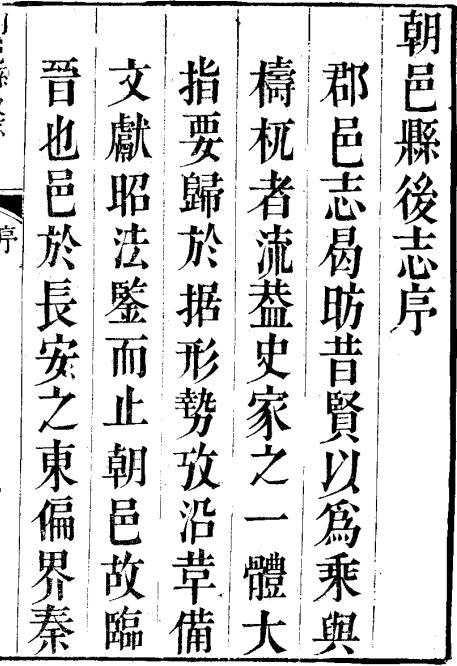 朝邑縣後志序
郡邑志曷昉昔賢以爲乘與
檮杌者流葢史家之一體大
指要歸於据形勢攷沿革備
文獻昭法鑒而止朝邑故臨
晉也邑於長安之東偏界秦
序